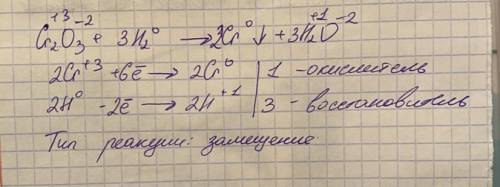 +3 -2 0 0 +1 -2
Cr₂O₃ + 3H₂⁰ → 2Cr⁰ ↓ + 3H₂O
2Cr⁺³ +6ē → 2Cr⁰ | 1 - окислитель
2H⁰ -2ē → 2H⁺¹ | 3 - восстановитель
Тип реакции: замещение